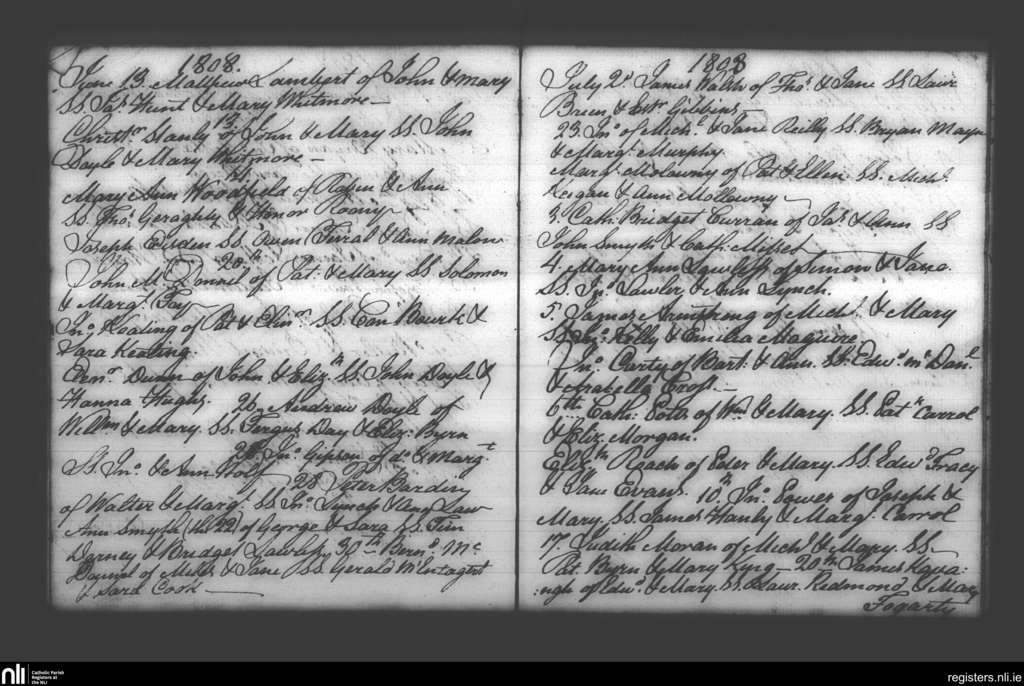 1808.
June 13. Mathew Lambert of John & Mary
SS Jas. Hunt & Mary Whitmore —
13
Christr. Stanly of John & Mary SS. John
Doyle & Mary Whitmore —
Mary Ann Woodfield of & Ann
SS. Thos. Geraghty & Honor Roony —
Joseph SS. Owen Ferral & Ann Malone
20th
John Mc. Donnel of Pat. & Mary SS Solomon
& Margt. Foy
Jno. Keating of Pat & Elinr. SS. Bourk &
Sara Keating.
Dunn of John & Eliz.th SS. John Doyle &
Hanna Hughs. 26. Andrew Doyle of
Willm. & Mary. SS. Fergus Day & Eliz. Byrn
26. Jno. Gibson of do. & Margt.
SS. Jno. & Ann Wolf. 28 Peter Bardin
of Walter & Marg. SS Jno. Lynch & Law
Ann Smyth (the 22) of George & Sara SS. Tim
Darney & Bridget Lawless. 30th Bernd. Mc
Daniel of & Jane SS Gerald McEntagert
& Sara Cook —
1808
July 2d. James Walsh of Thos. & Jane SS Laur
Breen & Esthr Gibbins —
23. Jno. of Michl. & Jane Reilly SS. Bryan Mayn
& Margt. Murphy.
Mark Molowny of Pat & Ellen SS. Michl.
Keegan & Ann Mollowny —
3. Cath. Bridget Curran of Jas. & Ann SS
John Smyth & Cath. Misset —
4. Mary Ann Lawless of Simon & Jane.
SS. Jno. Lawler & Ann Lynch.
5. James Armstrong of Michl. & Mary
SS Jno. Kelly & Emilia Maguire
Jno. Carty of Bart. & Ann. SS. Edwd. McDanl.
& Arabella Croft. —
6th Cath: of Wm. & Mary. SS. Patk. Carrol
& Eliz. Morgan.
Eliz.th Roach of Peter & Mary. SS. Edwd. Tracy
& Jane Evans. 10th Jno. Power of Joseph &
Mary. SS. James Hanly & Marg. Carrol
17. Judith Moran of Michl. & Mary. SS.
Pat Byrn & Mary King — 20th James Kava:
:ngh of Edwd. & Mary. SS. Laur. Redmond & Mary
Fogarty
nli
Catholic Parish
Registers at
the NLI
registers.nli.ie